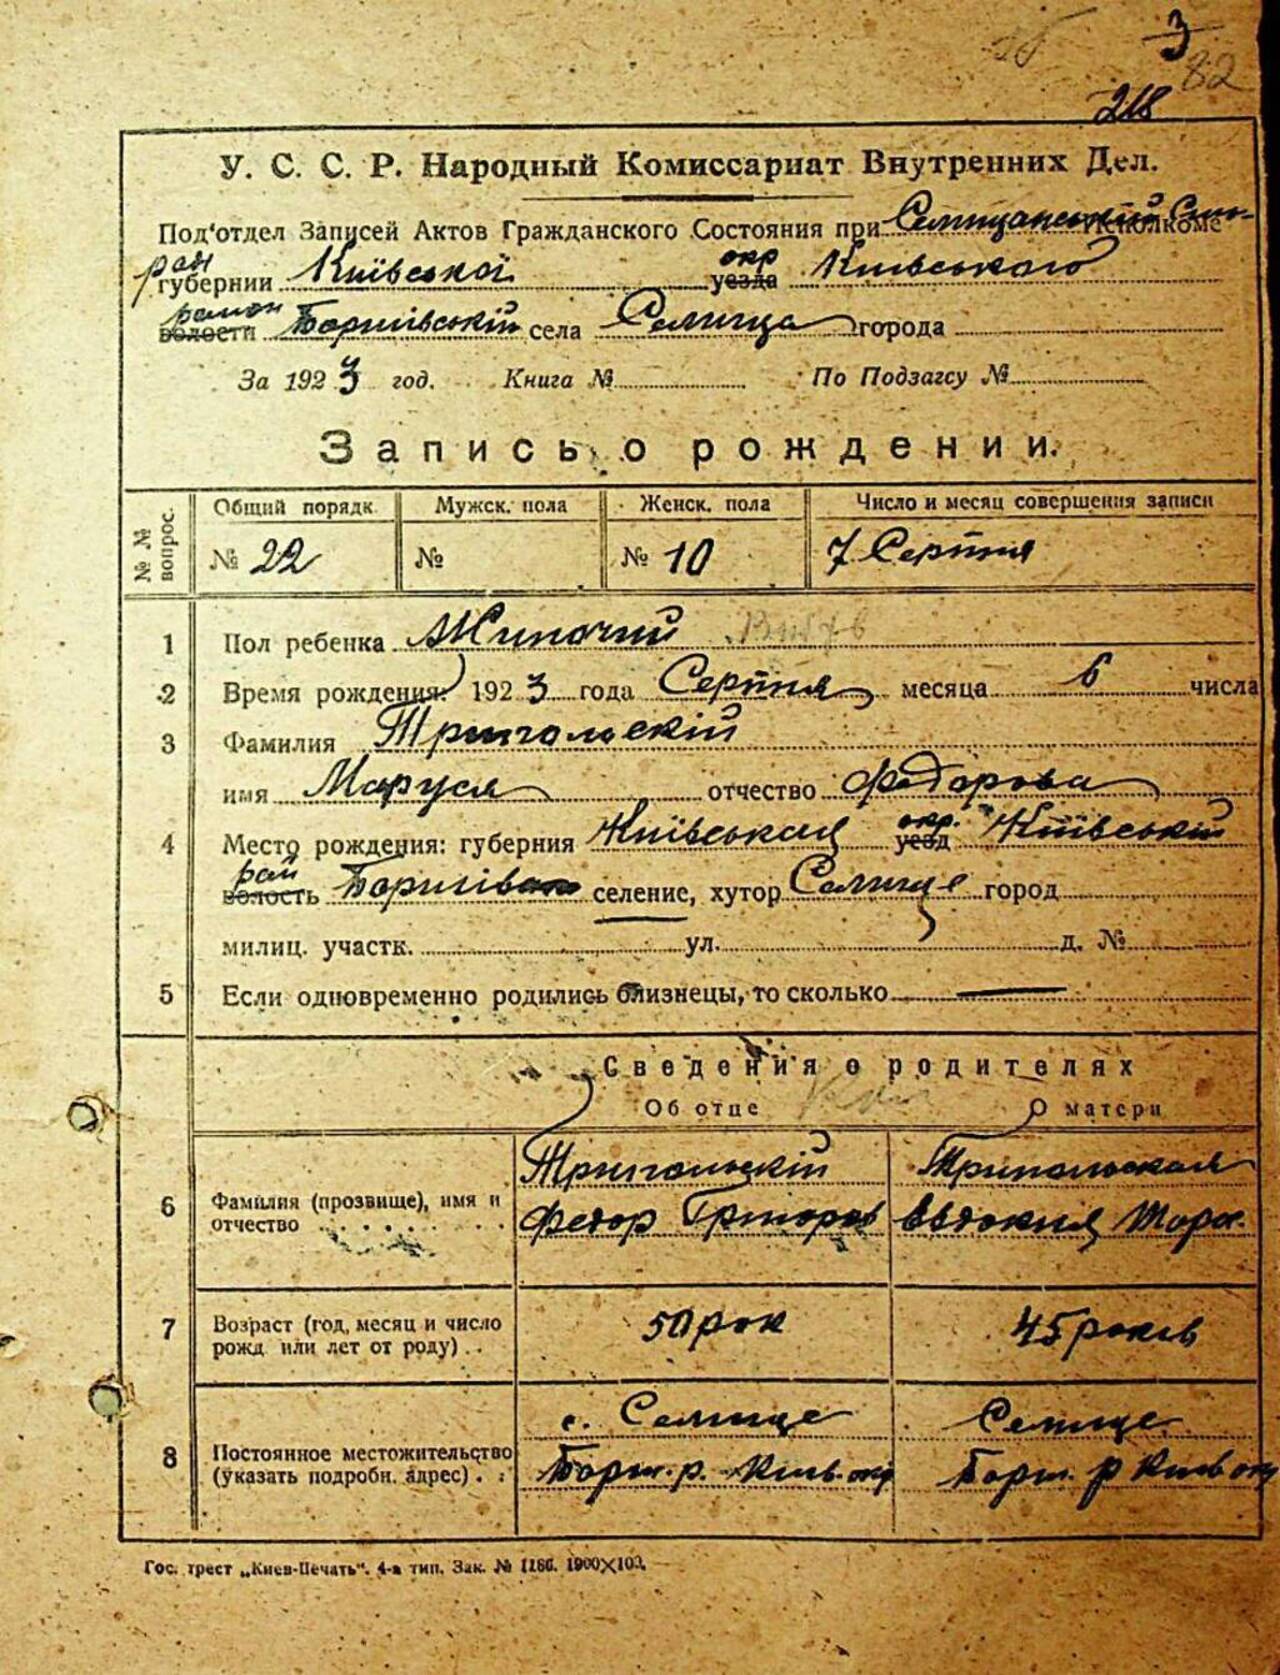 3
82
218
У. С. С. Р. Народный Комиссариат Внутренних Дел.
Под'отдел Записей Актов Гражданского Состояния при Селищанський Исполкоме
губернии Київської окр уезда Київського
район волости села Селища города
За 1923 год. Книга № По Подзагсу №
Запись о рождении.
№ № вопрос. Общий порядк. Мужск. пола Женск. пола Число и месяц совершения записи
№ 22 № № 10 7 Серпня
1 Пол ребенка Жиночий
2 Время рождения: 1923 года Серпня месяца 6 числа
3 Фамилия Трипольскій
имя Маруся отчество Федорова
4 Место рождения: губерния Київськая окр. уезд Київській
рай волость селение, хутор Селище город
милиц. участк. ул. д. №
5 Если одновременно родились близнецы, то сколько —
Сведения о родителях
Об отце О матери
Трипольскій Трипольская
6 Фамилия (прозвище), имя и отчество Федор Григоров Евдокия
7 Возраст (год, месяц и число рожд. или лет от роду) 50 рок 45 років
с. Селище Селище
8 Постоянное местожительство (указать подробн. адрес) Бориш. р. Київ. окр Бориш. р Київ окр
Гос. трест „Киев-Печать". 4-я тип. Зак. № 1186. 1900×100.